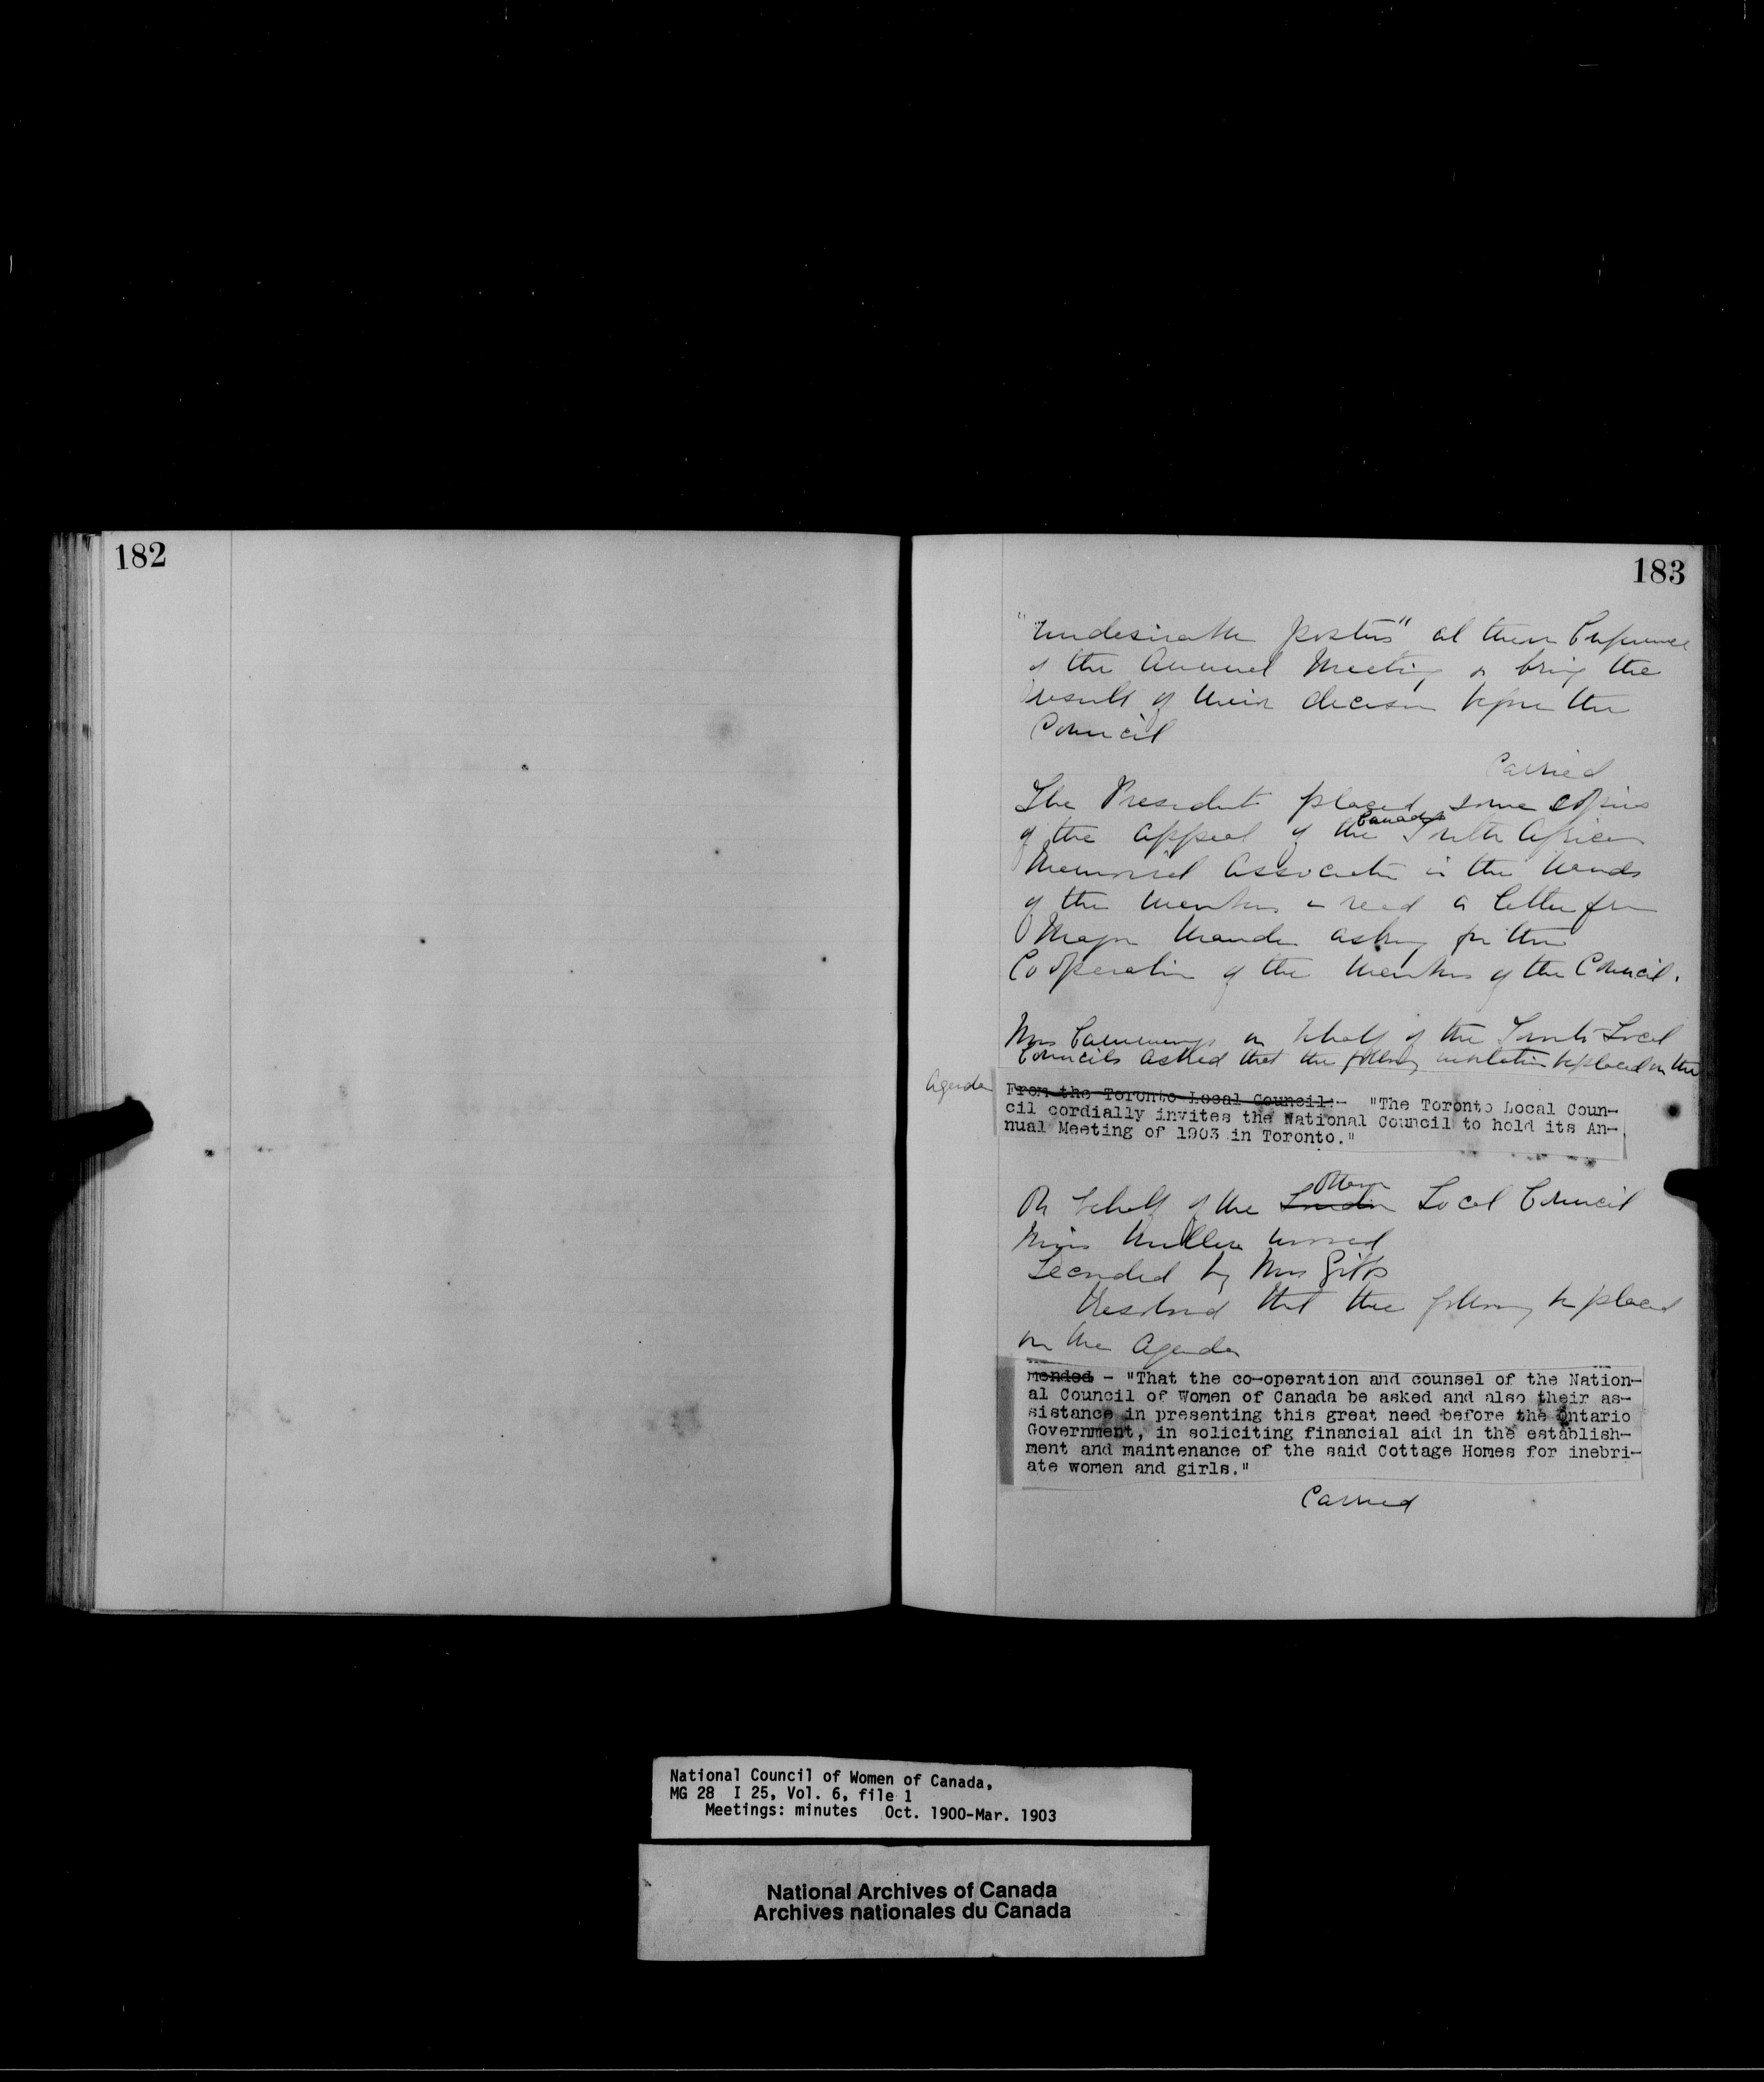 182
183
"undesirable posters" at their Conference
at the Annual Meeting & bring the
result of their decision before the
Council
Carried
The President placed some copies
of the appeal of the Canadian South African
Memorial Association in the hands
of the members & read a letter from
Major Maude asking for the
Cooperation of the members of the Council.
Mrs Cummings on behalf of the Toronto Local
Councils asked that the following invitation be placed on the
Agenda
From the Toronto Local Council:- "The Toronto Local Coun-
cil cordially invites the National Council to hold its An-
nual Meeting of 1903 in Toronto."
On behalf of the London Ottawa Local Council
Miss moved
Seconded by Mrs Gibbs
Resolved that the following be placed
on the Agenda
mended - "That the co-operation and counsel of the Nation-
al Council of Women of Canada be asked and also their as-
sistance in presenting this great need before the Ontario
Government, in soliciting financial aid in the establish-
ment and maintenance of the said Cottage Homes for inebri-
ate women and girls."
Carried
National Council of Women of Canada,
MG 28 I 25, Vol. 6, file 1
Meetings: minutes Oct. 1900-Mar. 1903
National Archives of Canada
Archives nationales du Canada